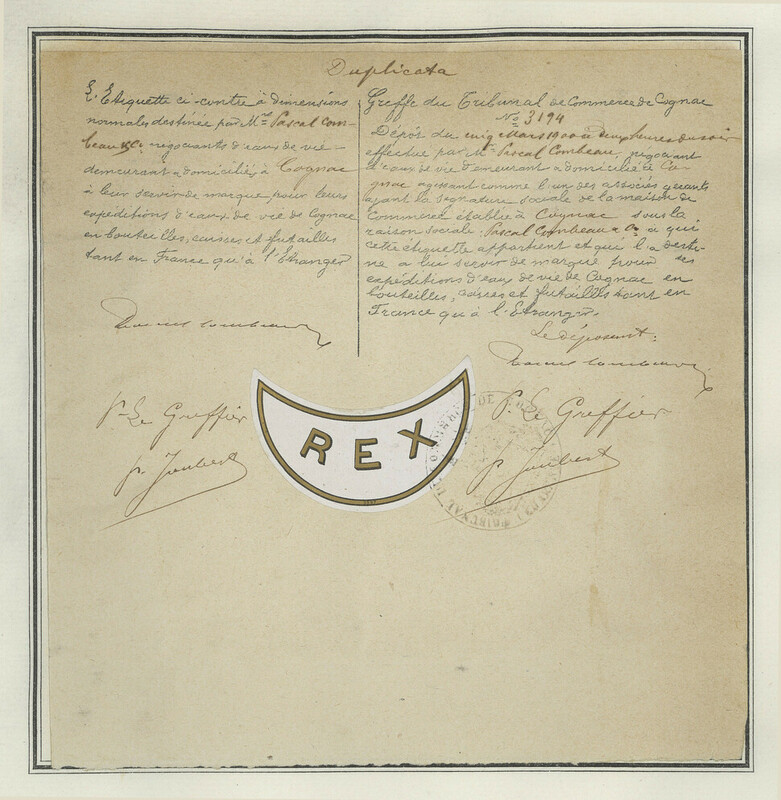 Duplicata
L'Etiquette ci-contre à dimensions
normales destinée par Mr Pascal Com-
beau & Co négociants d'eaux de vie
demeurant & domiciliés à Cognac
à leur servir de marque pour leurs
expéditions d'eaux de vie de Cognac
en bouteilles, caisses et futailles
tant en France qu'à l'Etranger
P. Le Greffier
p. Joubert
Greffe du Tribunal de Commerce de Cognac
No 3194
Dépôt du cinq Mars 1900 à deux heures du soir
effectué par Mr Pascal Combeau, négociant
d'eaux de vie demeurant & domicilié à Co-
gnac agissant comme l'un des associés gérants
ayant la signature sociale de la maison de
Commerce établie à Cognac sous la
raison sociale: Pascal Combeau & Co à qui
cette étiquette appartient et qui l'a desti-
né à lui servir de marque pour ses
expéditions d'eaux de vie de Cognac en
bouteilles, caisses et futailles tant en
France qu'à l'Etranger.
Le déposant:
P. Le Greffier
p. Joubert
REX